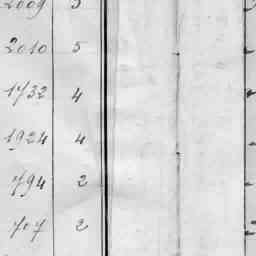 2009 3
2010 5
1732 4
1924 4
794 2
707 2